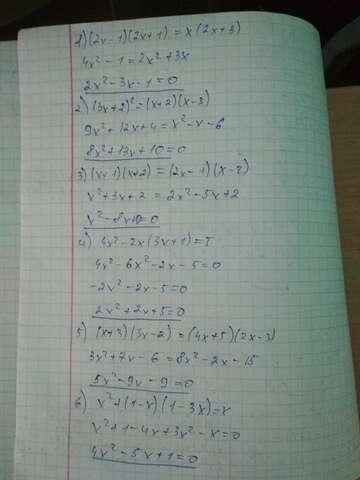 1) (2x-1)(2x+1) = x(2x+3)
4x² - 1 = 2x² + 3x
2x² - 3x - 1 = 0
2) (3x+2)² = (x+2)(x-3)
9x² + 12x + 4 = x² - x - 6
8x² + 13x + 10 = 0
3) (x+1)(x+2) = (2x-1)(x-2)
x² + 3x + 2 = 2x² - 5x + 2
x² - 8x = 0
4) 4x² - 2x(3x+1) = 5
4x² - 6x² - 2x - 5 = 0
-2x² - 2x - 5 = 0
2x² + 2x + 5 = 0
5) (x+3)(3x-2) = (4x+5)(2x-3)
3x² + 7x - 6 = 8x² - 2x - 15
5x² - 9x - 9 = 0
6) x² + (1-x)(1-3x) = x
x² + 1 - 4x + 3x² - x = 0
4x² - 5x + 1 = 0